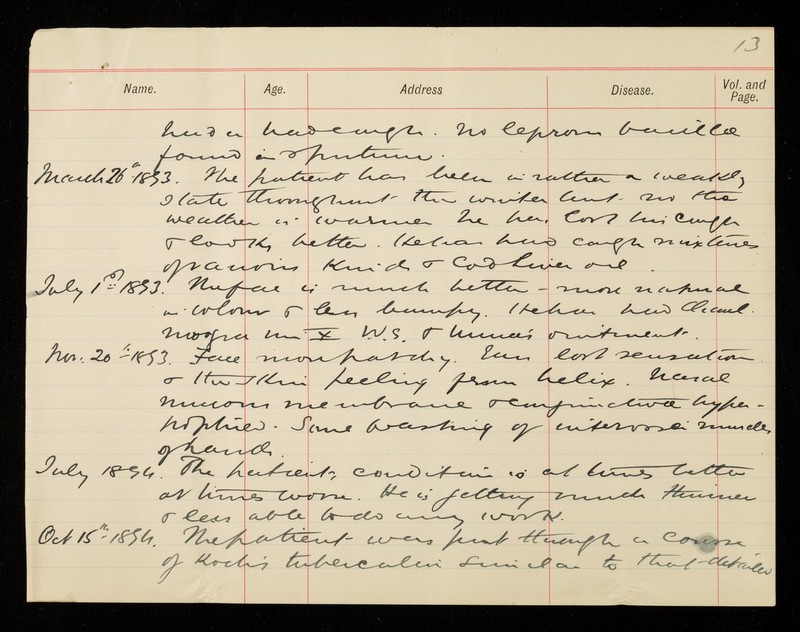 13
Name. Age. Address Disease. Vol. and Page.
had a bad cough. No leprosy bacilli
found in sputum.
March 26th 1893. The patient has been in rather a weakly
state throughout the winter but now the
weather is warmer he has lost his cough
& looks better. He has had cough mixtures
of various kinds & Cod Liver oil.
July 1st 1893. The face is much better - more natural
in colour & less bumpy. He has had Chaul-
moogra min X W.S. & Unna's ointment.
Nov. 20th 1893. Face more patchy. Ears lost sensation
& the skin peeling from helix. Nasal
mucous membrane & conjunctiva hyper-
trophied. Some wasting of interossei muscles
of hands.
July 1894. The patient's condition is at times better
at times worse. He is getting much thinner
& less able to do any work.
Oct 15th 1894. The patient was put through a course
of Koch's tuberculin similar to that detailed